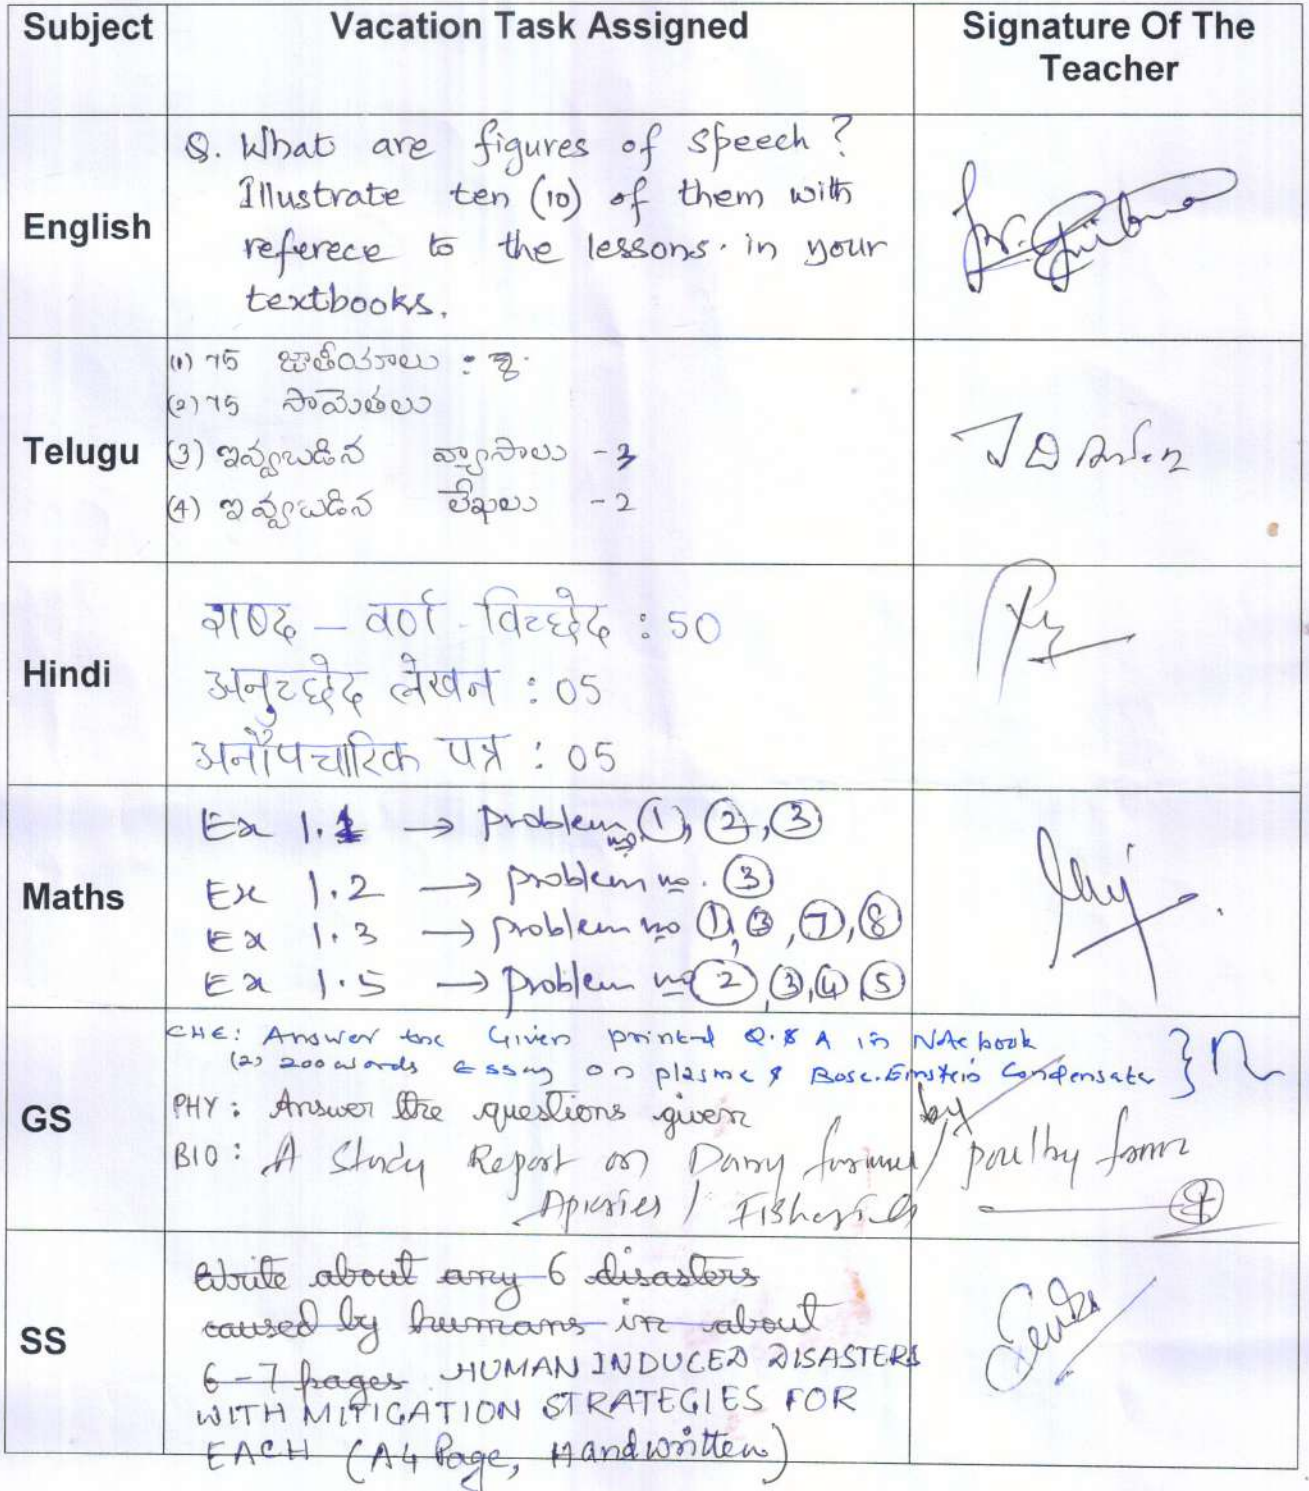 Subject Vacation Task Assigned Signature Of The Teacher
English
Q. What are figures of speech ?
Illustrate ten (10) of them with
referece to the lessons in your
textbooks.
Telugu
(1) 75 జాతీయాలు :
(2) 75 సామెతలు
(3) ఇవ్వబడిన వ్యాసాలు - 3
(4) ఇవ్వబడిన లేఖలు - 2
Hindi
शब्द - वर्ण - विच्छेद : 50
अनुच्छेद लेखन : 05
अनौपचारिक पत्र : 05
Maths
Ex 1.1 → problem no. 1, 2, 3
Ex 1.2 → problem no. 3
Ex 1.3 → problem no 1, 3, 7, 8
Ex 1.5 → problem no 2, 3, 4, 5
GS
CHE: Answer the Given printed Q. & A in Notebook
(2) 200 words Essay on plasma & Bose. Einstein Condensate
PHY: Answer the questions given
BIO: A Study Report on Dairy farming / poultry farm
Apiaries / Fisheries
SS
Write about any 6 disasters
caused by humans in about
6-7 pages. HUMAN INDUCED DISASTERS
WITH MITIGATION STRATEGIES FOR
EACH (A4 Page, Handwritten)